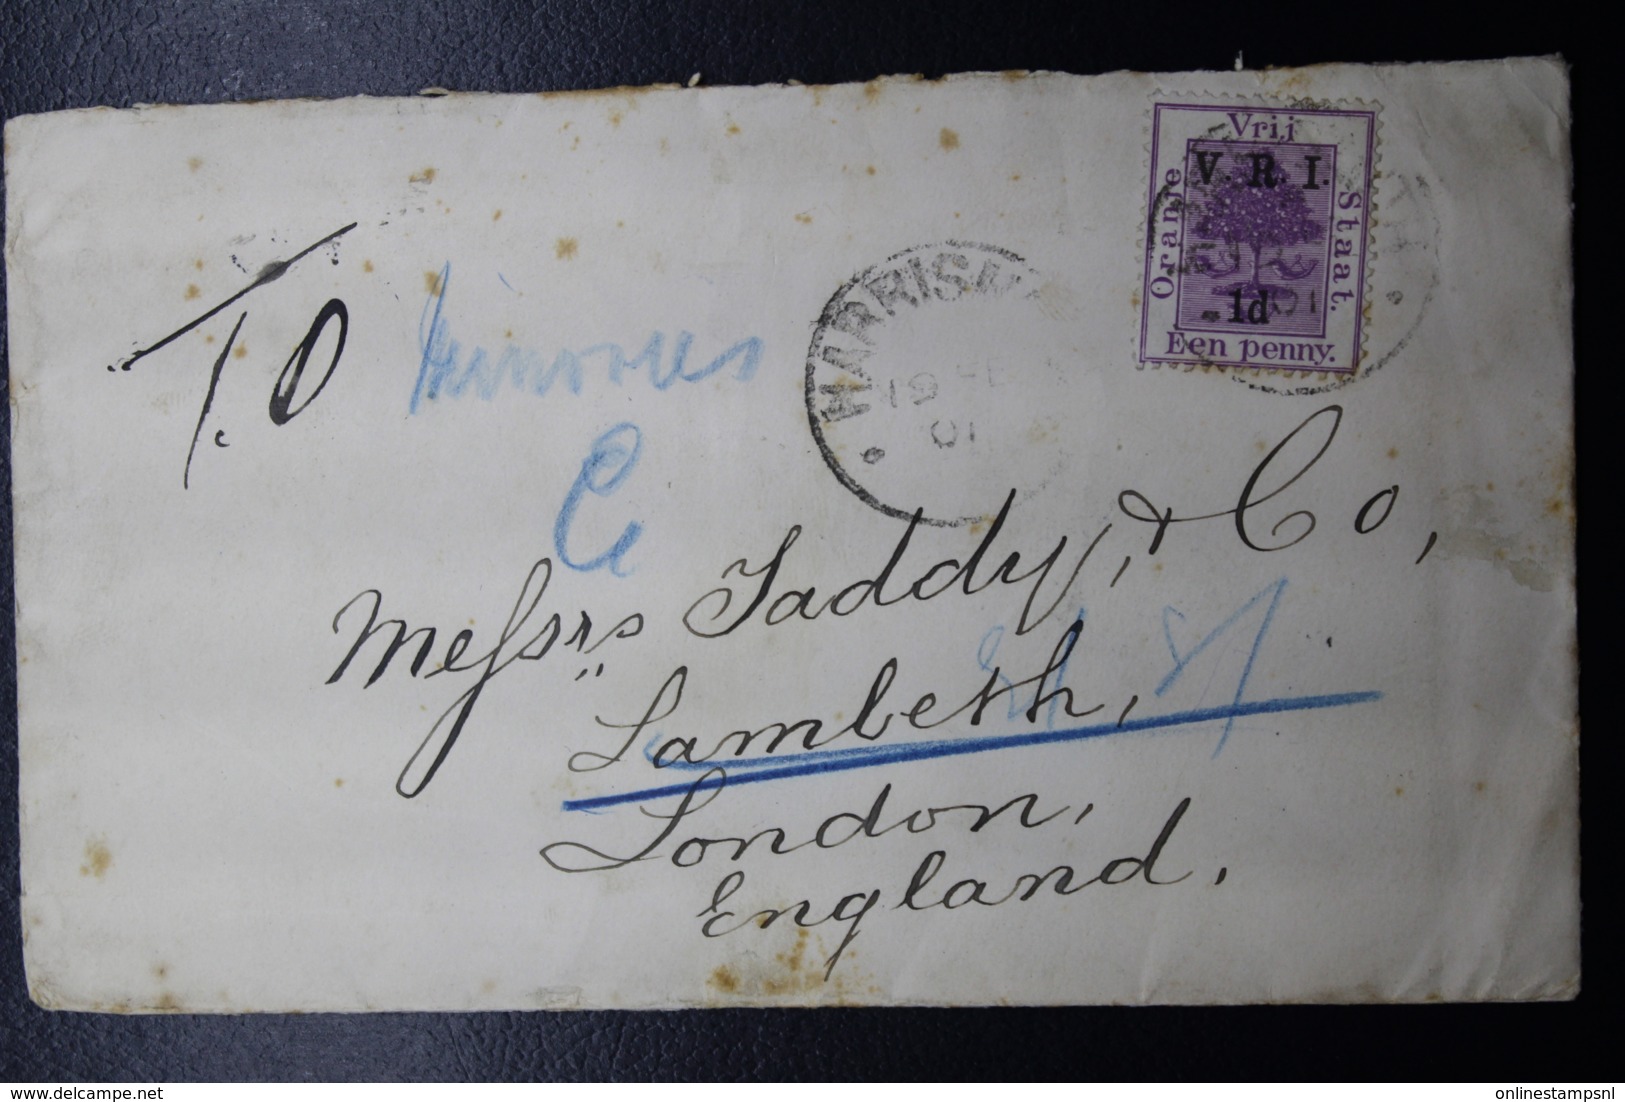 Vrij
Oranje
Staat.
V. R. I.
1d
Een penny.
HARRISM
19 FE
01
T.O
Minories
E
Messrs Taddy, & Co,
Lambeth,
London,
England.
delcampe.net
onlinestampsnl